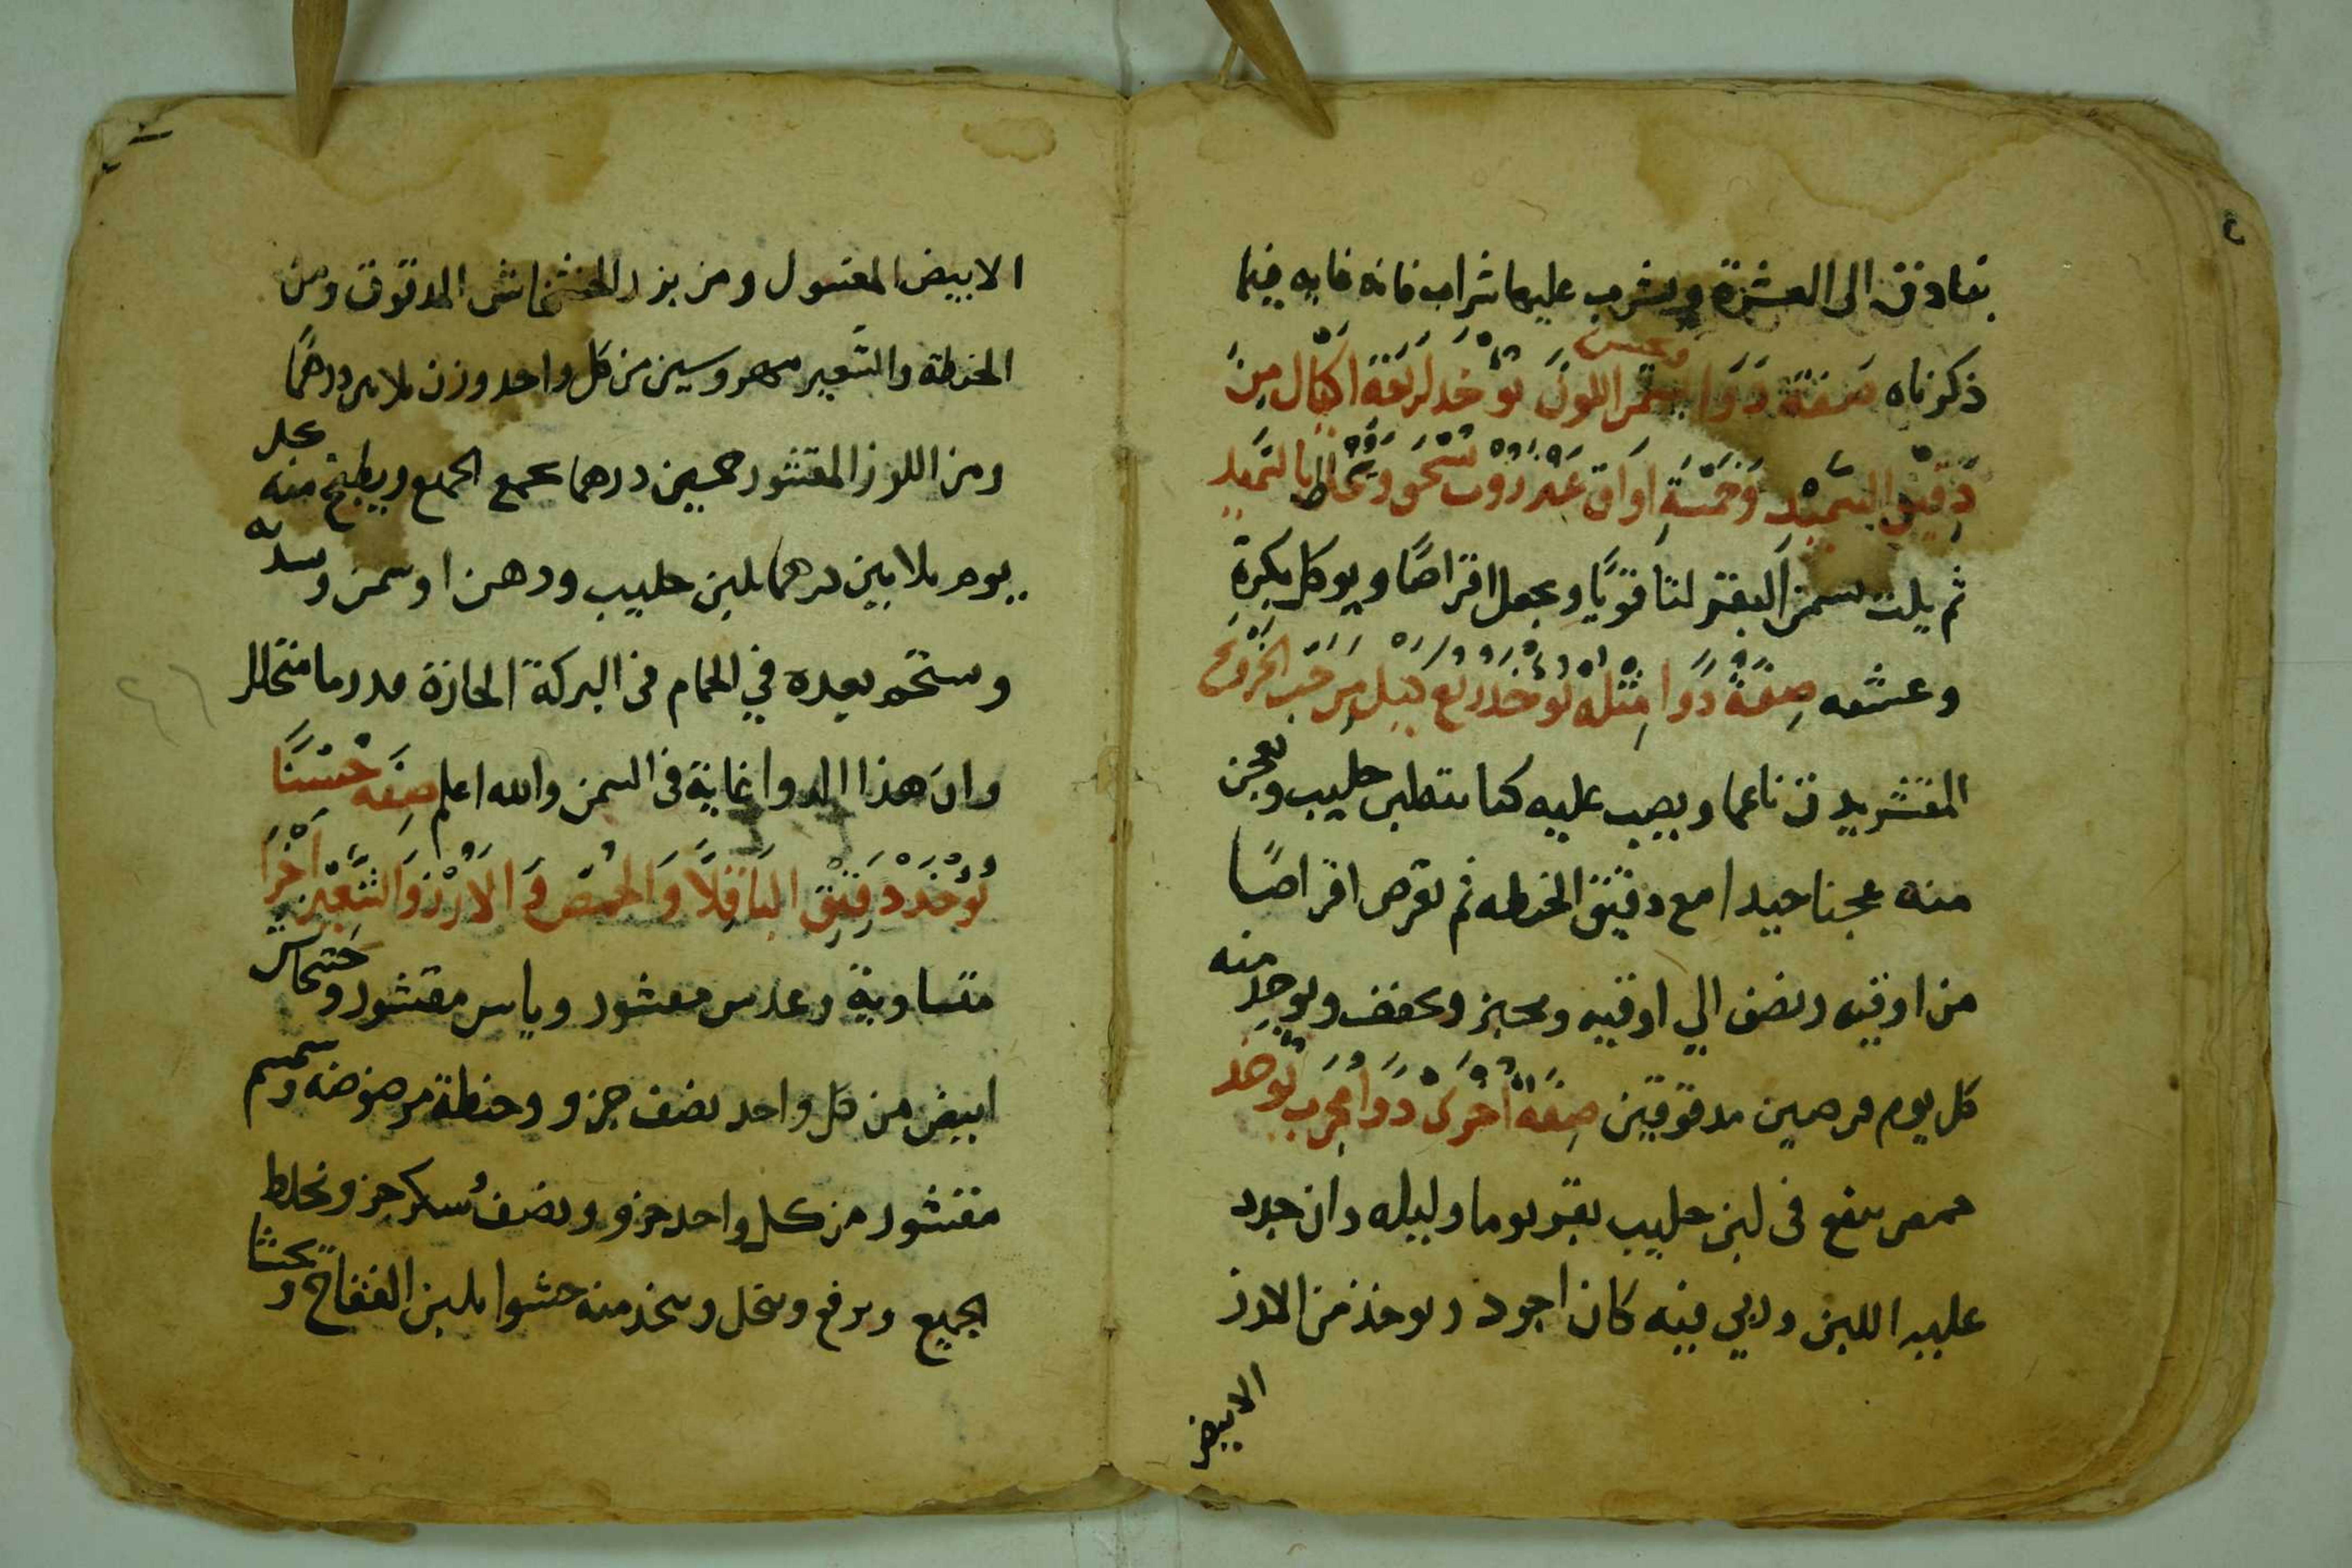 اواق الى العشرة ويشرب عليها شراب فانه غايه فيما
ذكرناه صفة دَوَا يسمن اللون ويحسن تؤخد اربعة اكيال من
دقيق السميد وخمسة اواق عنزروت تسحق وتخلط بالسميد
ثم يلت بسمن البقر لتا قويًا ويجعل اقراصًا ويوكل بكرة
وعشيه صفة دوا مثله توخد ربع كيل من حب الخروع
المقشر يدق ناعما ويصب عليه لبن حليب ويعجن
منه عجنا جيدا مع دقيق الحنطه ثم يقرص اقراصًا
من اوقيه ونصف الي اوقيه ويخبز ويجفف ويوخذ منه
كل يوم قرصين مدقوقين صفة اخرى دوا مجرب توخد
حمص ينقع فى لبن حليب بقر يوما وليله وان جدد
عليه اللبن وربي فيه كان اجود ويوخذ من الارز
الابيض
الابيض المغسول ومن بزر الخشخاش المدقوق ومن
الحنطة والشعير مهروسين من كل واحد وزن ثلاثين درهمًا
ومن اللوز المقشور خمسين درهما يجمع الجميع ويطبخ منه كل
يوم ثلاثين درهما بلبن حليب ودهن او سمن
ويستحم بعده في الحمام فى البركة الحارة قدر ما
وان هذا الدوا غاية فى السمن والله اعلم صفه حسنًا
تؤخد دقيق الباقلا والحمص والارز والشعير اجزا
متساوية وعدس مقشور مقشور وخشخاش
ابيض من كل واحد نصف جزو وحنطة مرضوضه وسمسم
مقشور من كل واحد جزو ونصف سكر جزو وتخلط
الجميع ويرفع وينخل ويتخذ منه حشوا بلبن اللقاح